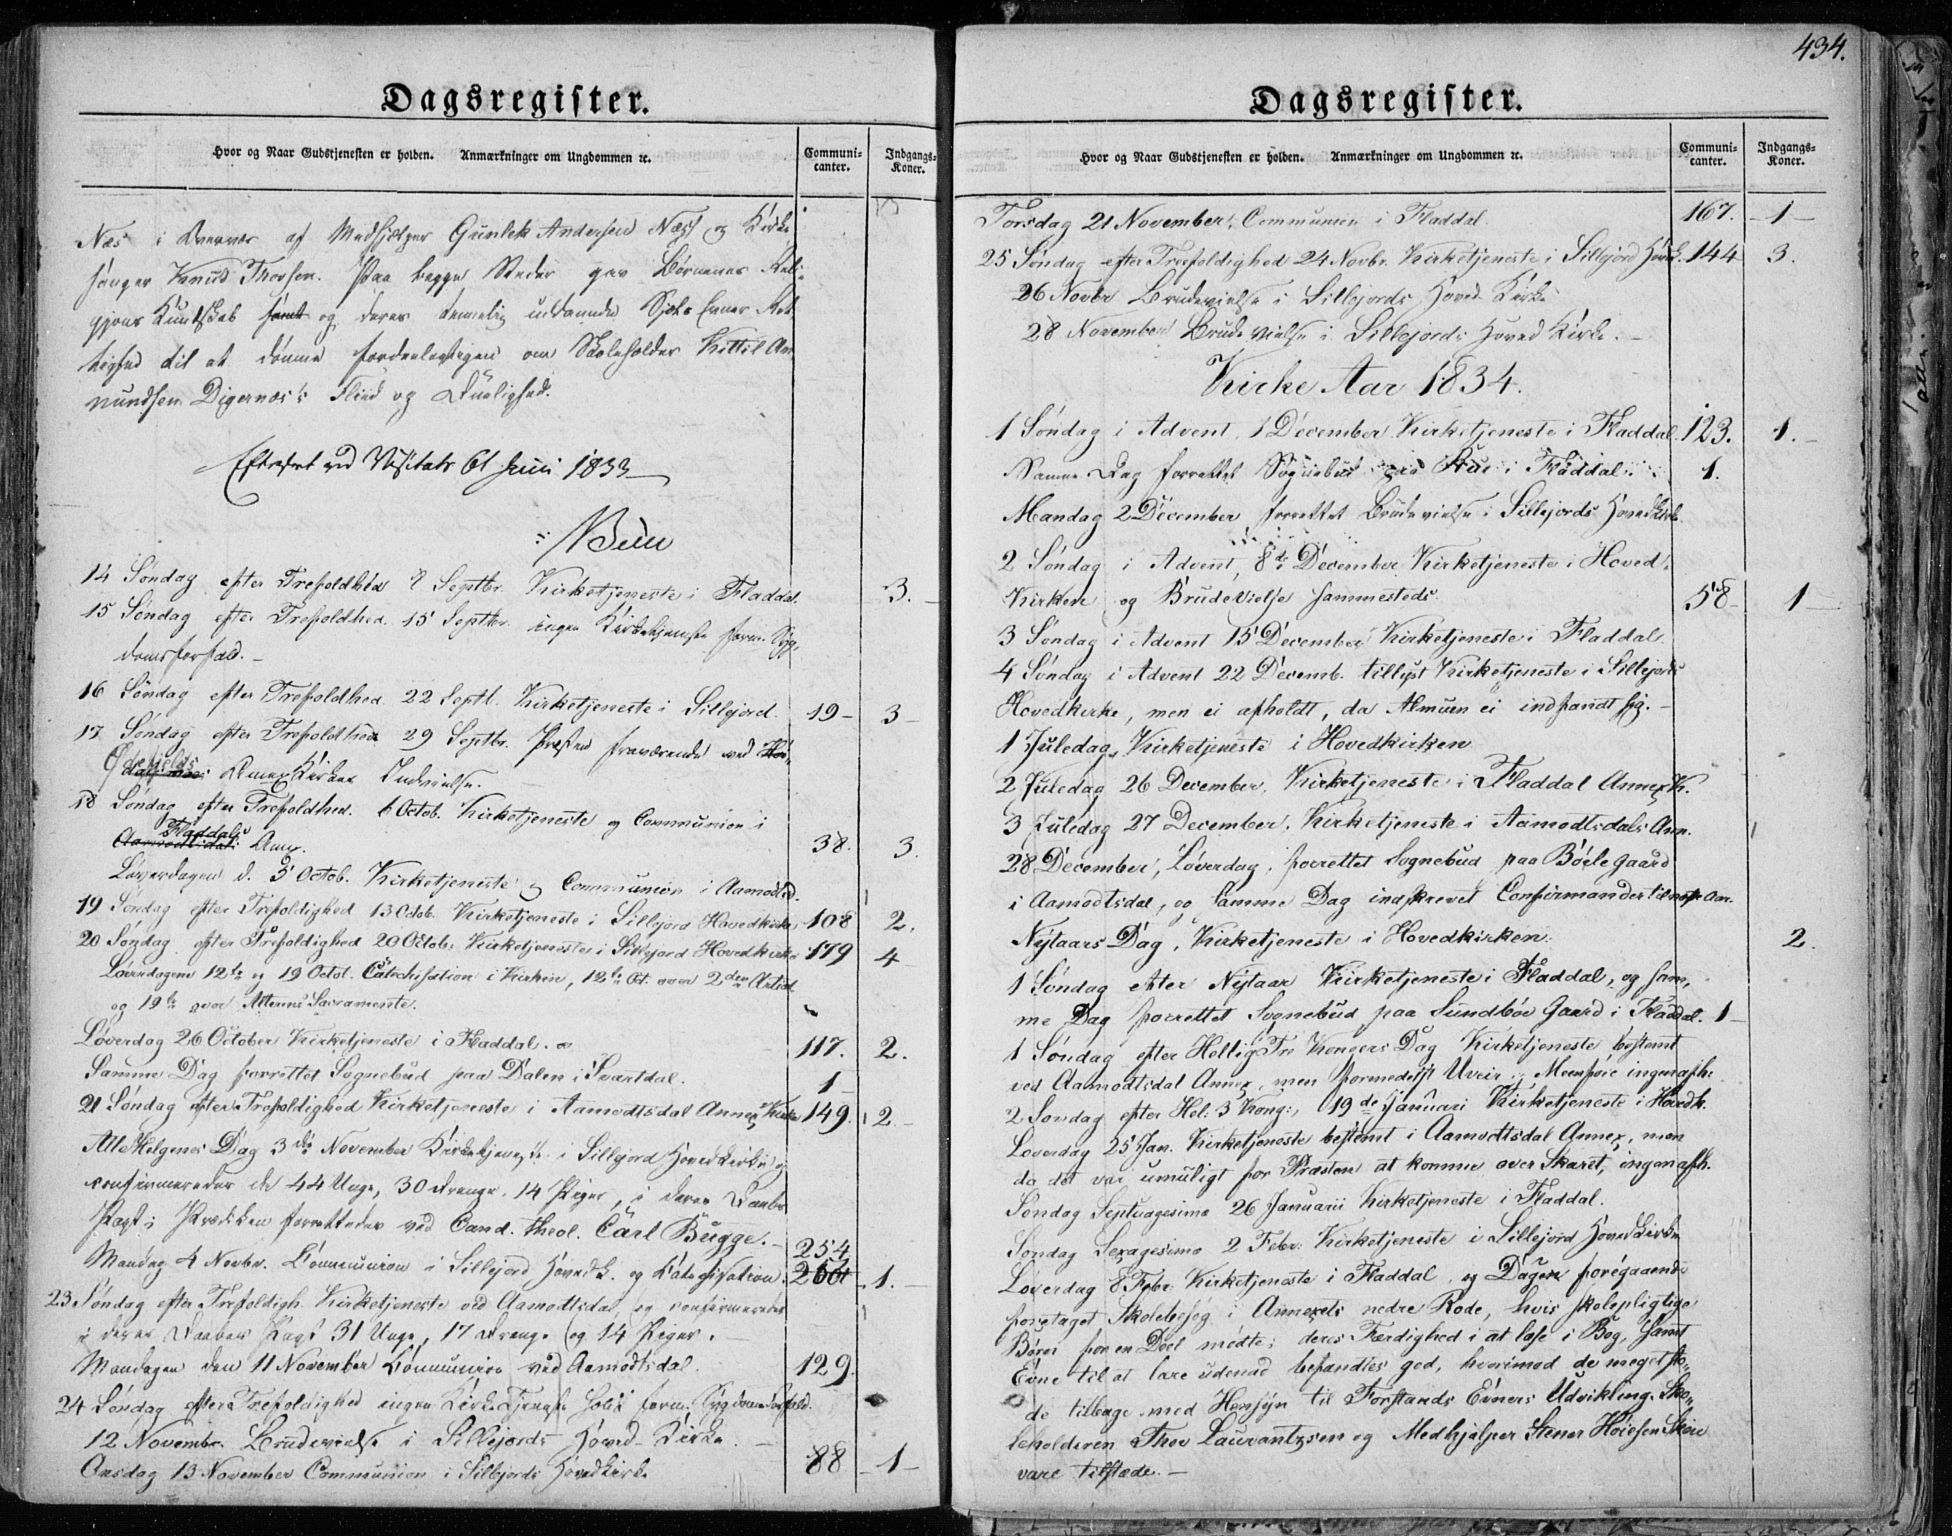 434.
Dagsregister.
Hvor og Naar Gudstjenesten er holden. Anmærkninger om Ungdommen ꝛc.
Communi-canter.
Indgangs-Koner.
Næs i af Medhjælper Gunlek Andersen Næss og Kirke
sanger Knud Thorsen. Paa begge Steder gav Børnenes Reli-
gions Kundskab samt og deres temmelig uddannede Sjels Evner
til at dømme fordeelagtigen om Skoleholder Kittil Am
mundsen Digernæs's Fliid og Duelighed.
Efterseet ved Visitats 6t Juni 1833
14 Søndag efter Trefoldhed 8 Septbr. Kirketjeneste i Fladdal. 3.
15 Søndag efter Trefoldhed. 15 Septbr. ingen Kirketjeneste form. Syg-
domsforfald.
16 Søndag efter Trefoldhed 22 Septb. Kirketjeneste i Sillejord. 19 - 3 -
17 Søndag efter Trefoldhed 29 Septbr. Præsten fraværende ved
Annex Kirkes Indvielse.
18 Søndag efter Trefoldhed. 6 Octob. Kirketjeneste og Communion i
Fladdals Aamodtsdals Anx. 38. 3.
Løverdagen d. 5 Octob. Kirketjeneste og Communion i Aamodtsd.
19 Søndag efter Trefoldighed 13 Octob. Kirketjeneste i Sillejord Hovedkirke 108 2.
20 Søndag efter Trefoldighed 20 Octob. Kirketjeneste i Sillejord Hovedkirke 179 4
Løverdagene 12te og 19 Octob. Catechisation i Kirken, 12te Oct. over 2den Artikel
og 19te over Alterens Sacramente.
Løverdag 26 October Kirketjeneste i Fladdal. 117. 2.
Samme Dag forrettet Sognebud paa Dalen i Svartdal. 1 -
21 Søndag efter Trefoldighed Kirketjeneste i Aamodtsdal Annex Kirke 149. 2. -
Alle Helgenes Dag 3die November Kirketjeneste i Sillejord Hovedkirke og
confirmeredes de 44 Unge, 30 Drenge, 14 Piger, i deres Daabs
Pagt; Præken forrettedes ved Cand. theol. Carl Bugge. -
Mandag 4 Novbr. Communion i Sillejord Hovedk. og Catechisation. 254 1. -
23 Søndag efter Trefoldigh. Kirketjeneste ved Aamodtsdal, og confirmeredes
i deres Daabes Pagt 31 Unge, 17 Drenge og 14 Piger.
Mandagen den 11 November Communion ved Aamodtsdal. 129.
24 Søndag efter Trefoldighed ingen Kirke Tjeneste holdt form. Sygdomsforfald.
12 Novembr. Brudevielse i Sillejords Hoved-Kirke. -
Onsdag 13 November Communion i Sillejords Hovedkirke 88 - 1 -
Dagsregister.
Hvor og Naar Gudstjenesten er holden. Anmærkninger om Ungdommen ꝛc.
Communi-canter.
Indgangs-Koner.
Torsdag 21 November, Communion i Fladdal. 167. - 1 -
25 Søndag efter Trefoldighed 24 Novbr. Kirketjeneste i Sillejord Hovk. 144 3.
26 Novbr Brudevielse i Sillejords Hoved Kirke
28 November Brudevielse i Sillejords Hoved Kirke. -
Kirke Aar 1834.
1 Søndag i Advent, 1 December Kirketjeneste i Fladdal. 123. 1. -
Samme Dag forrettet Sognebud paa i Fladdal. 1.
Mandag 2 December forrettet Brudevielse i Sillejords Hovedkirke.
2 Søndag i Advent, 8de December Kirketjeneste i Hoved-
Kirken og Brudevielse sammesteds. 58 - 1 -
3 Søndag i Advent 15 December Kirketjeneste i Fladdal.
4 Søndag i Advent 22 Decemb. tillyst Kirketjeneste i Sillejords
Hovedkirke, men ei afholdt, da Almuen ei indfandt sig. -
1 Juledag, Kirketjeneste i Hovedkirken
2 Juledag 26 December, Kirketjeneste i Fladdal Annex K.
3 Juledag 27 December, Kirketjeneste i Aamodtsdals Ann.
28 December, Løverdag, forrettet Sognebud paa Bøele gaard
i Aamodtsdal, og samme Dag indskrevet Confirmander til næste Aar.
Nytaars Dag, Kirketjeneste i Hovedkirken. 2.
1 Søndag efter Nytaar Kirketjeneste i Fladdal, og sam-
me Dag forrettet Sognebud paa Sundbøe Gaard i Fladdal. 1 -
1 Søndag efter Hellig Tre Kongers Dag Kirketjeneste bestemt
ved Aamodtsdal Annex, men formedelst Uveir og Meenføre ingen afh:
2 Søndag efter Hel: 3 Kong:, 19de Januari Kirketjeneste i Hovedk.
Løverdag 25 Jan. Kirketjeneste bestemt i Aamodtsdal Annex, men
da det var umuligt for Præsten at komme over Skaret, ingen afh.
Søndag Septuagesima 26 Januarii Kirketjeneste i Fladdal.
Søndag Sexagesima 2 Febr: Kirketjeneste i Sillejord Hovedkirke
Løverdag 8 Febr. Kirketjeneste i Fladdal, og Dagen foregaaende
foretaget Skolebesøg i Annexets nedre Rode, hvis skolepligtige
Børn for en Deel mødte; deres Færdighed i at læse i Bog, samt
Evne til at lære udenad befandtes god, hvorimod de meget sto-
de tilbage med Hensyn til Forstands Evners Udvikling. Sko-
leholderen Thor Laurantzsen og Medhjælper Stener Høiesen Skore
vare tilstæde. -